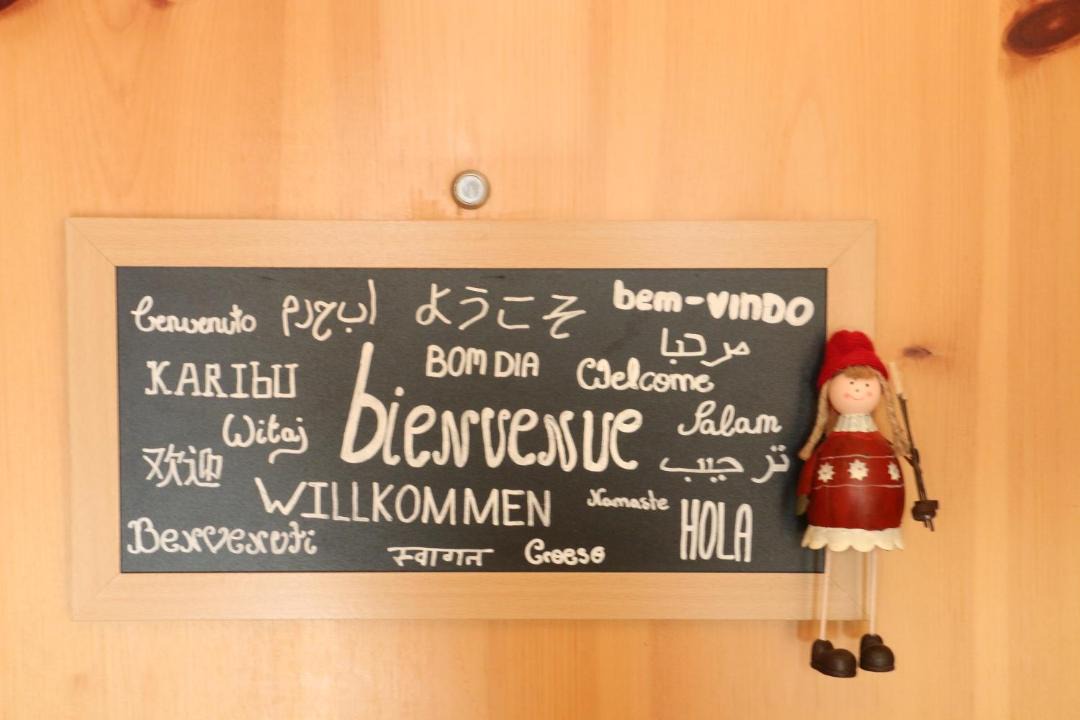 benvenuto
ようこそ
bem-VINDO
مرحبا
BOM DIA
KARIbU
Welcome
bienvenue
Salam
Witaj
ترحيب
欢迎
WILLKOMMEN
Namaste
HOLA
Benvenuti
स्वागत
Croeso